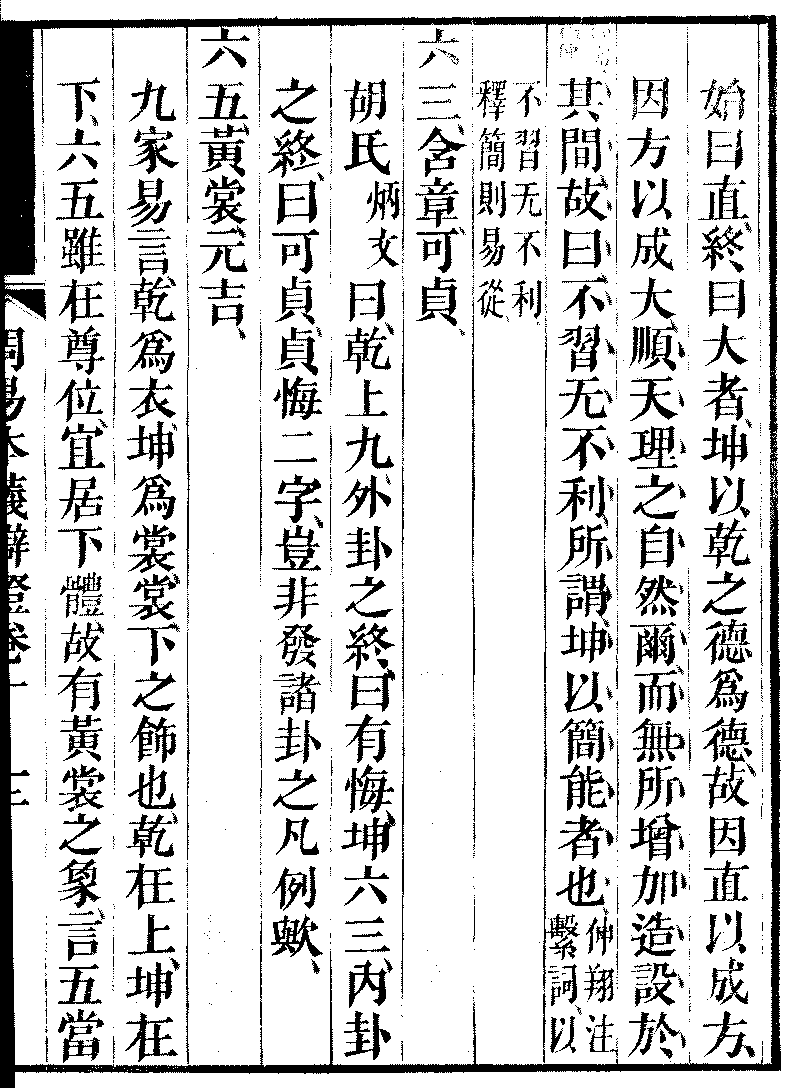 始曰直、終曰大者、坤以乾之德爲德、故因直以成方、
因方以成大、順天理之自然爾、而無所增加造設於
其間、故曰不習无不利、所謂坤以簡能者也、仲翔注繫詞、以
不習无不利釋簡則易從、
六三、含章可貞、
胡氏炳文曰、乾上九外卦之終、曰有悔、坤六三、內卦
之終、曰可貞、貞悔二字、豈非發諸卦之凡例歟、
六五、黃裳、元吉、
九家易言、乾爲衣、坤爲裳、裳下之飾也、乾在上、坤在
下、六五雖在尊位、宜居下體、故有黃裳之象、言五當
周易本義辯證卷一